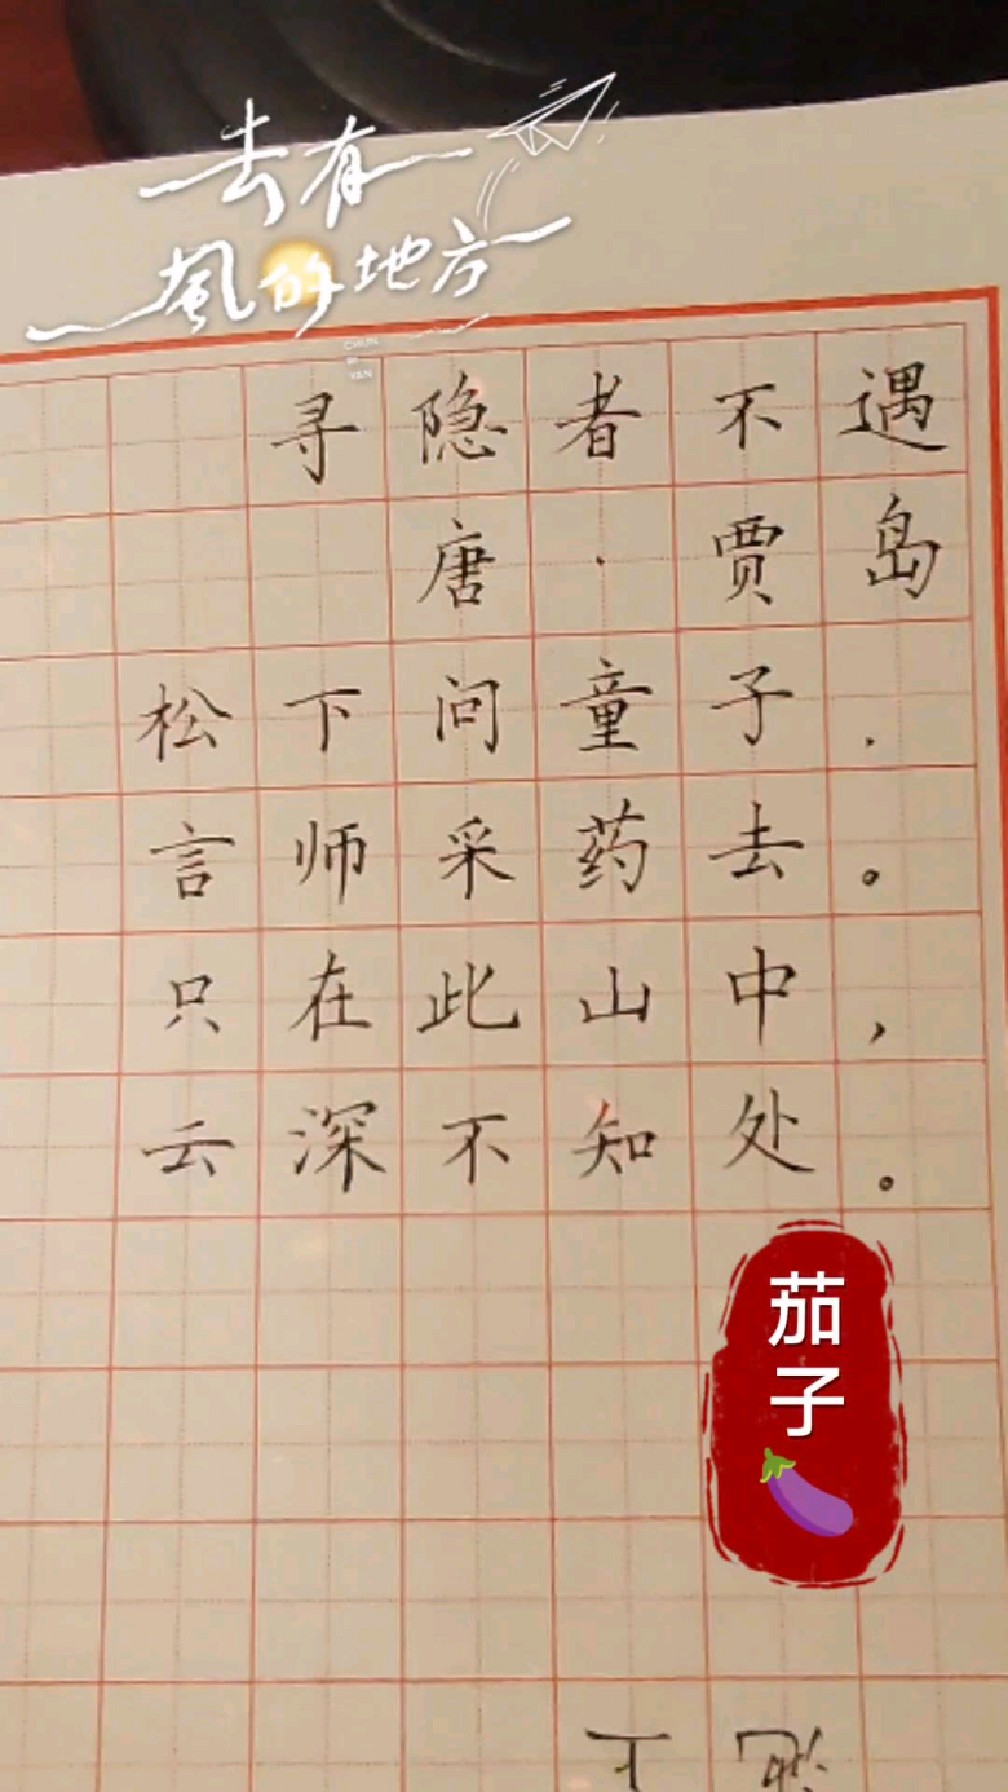 去有
風的地方
CHUN
YAN
寻隐者不遇
唐·贾岛
松下问童子.
言师采药去。
只在此山中,
云深不知处。
茄
子